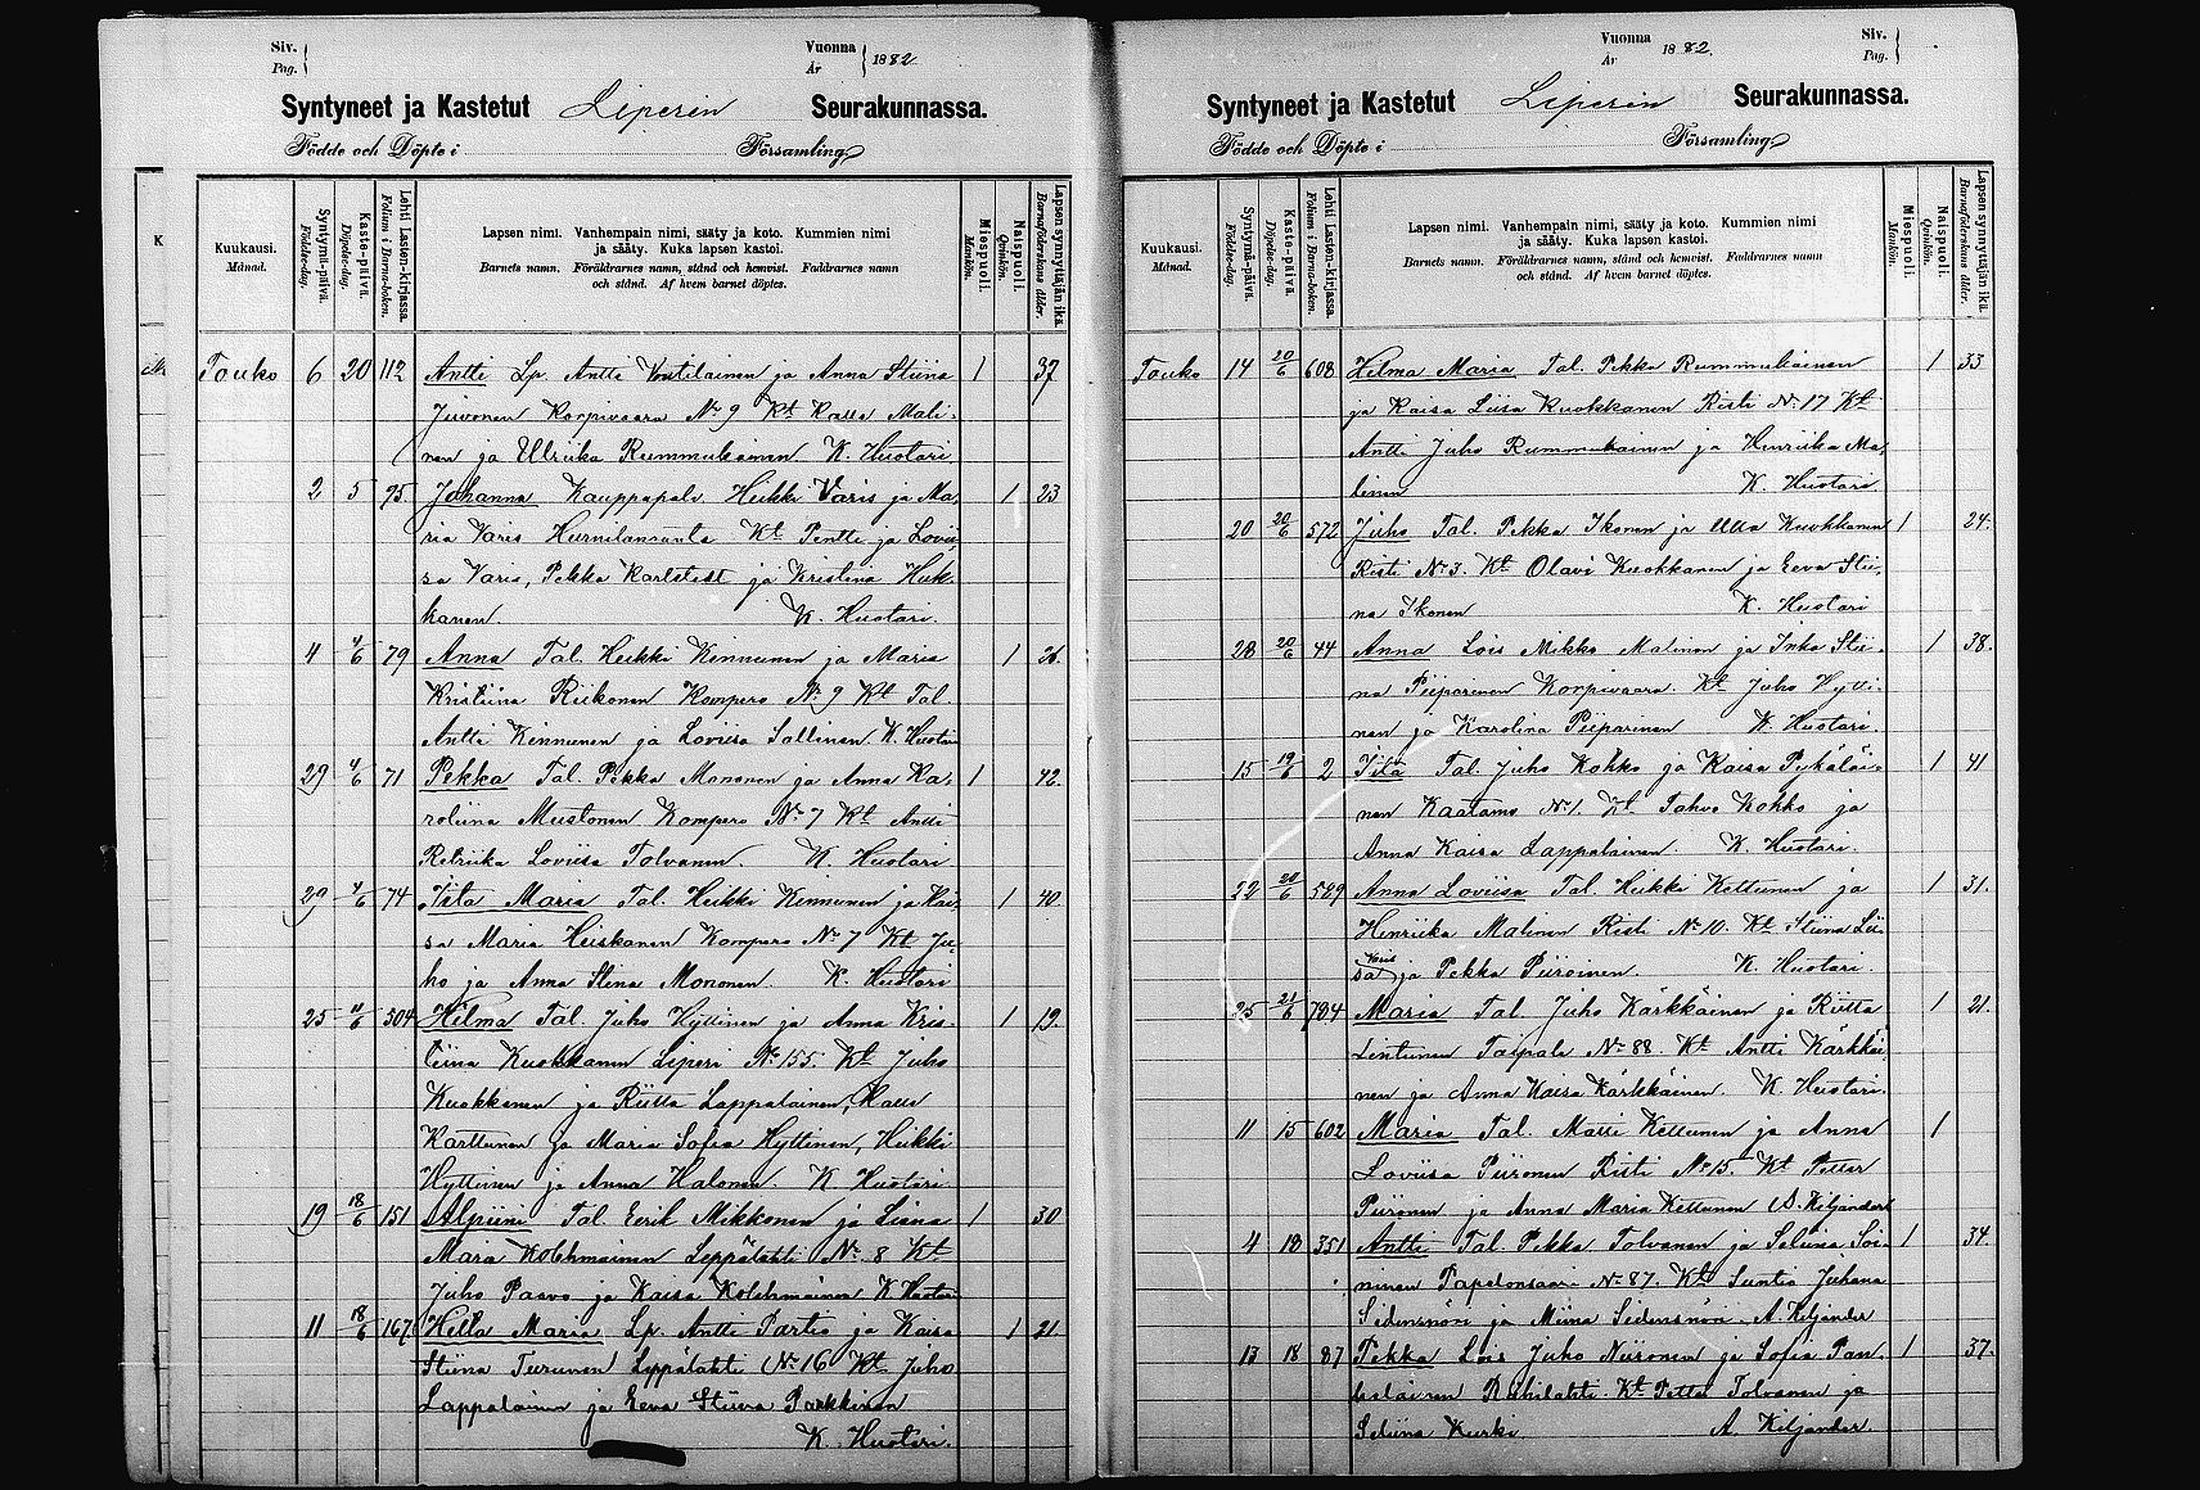 Siv.
Pag.
Vuonna
År
1882
Syntyneet ja Kastetut Liperin Seurakunnassa.
Födde och Döpte i Församling
Kuukausi.
Månad.
Syntymä-päivä.
Födelse-dag.
Kaste-päivä.
Döpelse-dag.
Lehti Lasten-kirjassa.
Folium i Barna-boken.
Lapsen nimi. Vanhempain nimi, sääty ja koto. Kummien nimi
ja sääty. Kuka lapsen kastoi.
Barnets namn. Föräldrarnes namn, stånd och hemvist. Faddrarnes namn
och stånd. Af hvem barnet döptes.
Miespuoli.
Mankön.
Naispuoli.
Qvinkön.
Lapsen synnyttäjän ikä.
Barnaföderskans ålder.
K
Touko 6 20 112 Antti Lp. Antti Vontilainen ja Anna Stiina 1 37
Juvonen Korpivaara No 9 Kt Kalle Mali-
nen ja Ulriika Rummukainen. K. Huotari
2 5 95. Johanna Kauppapalv. Heikki Varis ja Ma- 1 23
ria Varis Kt Pentti ja Lovii-
sa Varis, Pekka Karlstedt ja Kristina Huk-
kanen. K. Huotari.
4 4/6 79 Anna Tal. Heikki Kinnunen ja Maria 1 26.
Kristiina Riikonen Kompero No 9 Kt Tal.
Antti Kinnunen ja Loviisa Sallinen. K. Huotari
29 4/6 71 Pekka Tal. Pekka Mononen ja Anna Ka- 1 42.
roliina Mustonen Kompero No 7 Kt Antti
Retriika Loviisa Tolvanen. K. Huotari
29 4/6 74 Iita Maria Tal. Heikki Kinnunen ja Kai- 1 40.
sa Maria Heiskanen Kompero No 7 Kt Ju-
ho ja Anna Stina Mononen. K. Huotari
25 11/6 504 Hilma Tal. Juho Hyttinen ja Anna Kris- 1 19.
tiina Kuokkanen Liperi No 155. Kt Juho
Kuokkanen ja Riitta Lappalainen, Kalle
Karttunen ja Maria Sofia Hyttinen, Heikki
Hyttinen ja Anna Halonen. K. Huotari
19 18/6 151 Alpiini Tal. Eerik Mikkonen ja Liena 1 30
Maria Kolehmainen Leppälahti No 8 Kt
Juho Paavo ja Kaisa Kolehmainen K. Huotari
11 18/6 167 Hilla Maria Lp. Antti Partio ja Kaisa 1 21.
Stiina Turunen Leppälahti No 16 Kt Juho
Lappalainen ja Eeva Stiina Parkkinen
K. Huotari.
Vuonna
År
1882.
Siv.
Pag.
Syntyneet ja Kastetut Liperin Seurakunnassa.
Födde och Döpte i Församling
Kuukausi.
Månad.
Syntymä-päivä.
Födelse-dag.
Kaste-päivä.
Döpelse-dag.
Lehti Lasten-kirjassa.
Folium i Barna-boken.
Lapsen nimi. Vanhempain nimi, sääty ja koto. Kummien nimi
ja sääty. Kuka lapsen kastoi.
Barnets namn. Föräldrarnes namn, stånd och hemvist. Faddrarnes namn
och stånd. Af hvem barnet döptes.
Miespuoli.
Mankön.
Naispuoli.
Qvinkön.
Lapsen synnyttäjän ikä.
Barnaföderskans ålder.
Touko 14 20/6 608 Hilma Maria Tal. Pekka Rummukainen 1 33
ja Kaisa Liisa Kuokkanen Risti No 17 Kt
Antti Juho Rummukainen ja Henriika Ma-
linen K. Huotari.
20 20/6 572 Juho Tal. Pekka Ikonen ja Ulla Kuokkanen 1 24.
Risti No 3. Kt Olavi Kuokkanen ja Eeva Stii-
na Ikonen K. Huotari
28 20/6 44 Anna Lois Mikko Malinen ja Inka Stii- 1 38.
na Piiparinen Korpivaara. Kt Juho Hytti-
nen ja Karolina Piiparinen K. Huotari.
15 19/6 2 Iita Tal. Juho Kohko ja Kaisa Pykäläi- 1 41
nen Kaatamo No 1. Kt Tahvo Kohko ja
Anna Kaisa Lappalainen. K. Huotari.
22 20/6 589 Anna Loviisa Tal. Heikki Kettunen ja 1 31.
Henriika Malinen Risti No 10. Kt Stiina Lii-
sa Varis ja Pekka Piiroinen. K. Huotari.
25 21/6 784 Maria Tal. Juho Kärkkäinen ja Riitta 1 21.
Lintunen Taipale No 88. Kt Antti Kärkkäi-
nen ja Anna Kaisa Kärkkäinen. K. Huotari.
11 15 602 Maria Tal. Matti Kettunen ja Anna 1
Loviisa Piironen Risti No 15. Kt Petter
Piironen ja Anna Maria Kettunen A. Kiljander
4 18 351 Antti Tal. Pekka Tolvanen ja Seliina Soi- 1 34.
ninen Papelonsaari No 87. Kt Suntio Juhana
Sidensnöri ja Miina Sidensnöri. A. Kiljander
13 18 87 Pekka Lois Juho Niironen ja Sofia Pan- 1 37.
Riihilahti. Kt Petter Tolvanen ja
Seliina Kurki A. Kiljander.